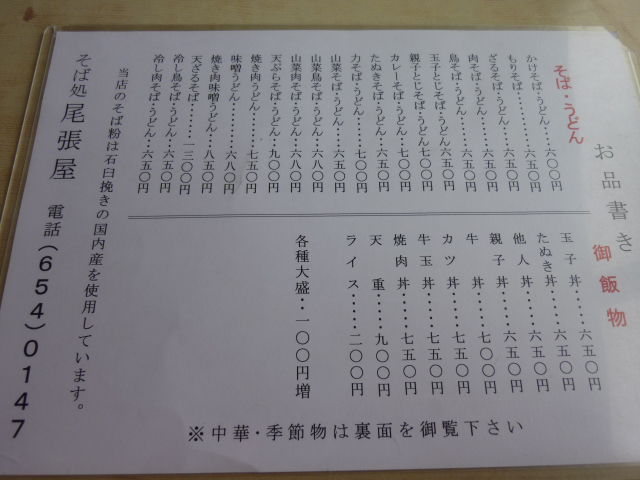 お品書き
そば・うどん
かけそば・うどん‥六〇〇円
もりそば‥‥‥‥六五〇円
ざるそば・うどん‥六五〇円
肉そば・うどん‥‥六五〇円
鳥そば・うどん‥‥六五〇円
玉子とじそば・うどん六五〇円
親子とじそば・うどん七〇〇円
カレーそば・うどん‥七〇〇円
たぬきそば・うどん‥六五〇円
力そば・うどん‥‥七〇〇円
山菜そば・うどん‥六五〇円
山菜鳥そば・うどん‥六八〇円
山菜肉そば・うどん‥六八〇円
天ぷらそば・うどん‥九〇〇円
焼き肉うどん‥‥‥七五〇円
味噌うどん‥‥‥‥六八〇円
焼き肉味噌うどん‥八五〇円
天ざるそば‥‥‥一三〇〇円
冷し鳥そば・うどん‥六五〇円
冷し肉そば・うどん‥六五〇円
御飯物
玉子丼‥‥‥六五〇円
たぬき丼‥‥‥六五〇円
他人丼‥‥‥六五〇円
親子丼‥‥‥六五〇円
牛丼‥‥‥七〇〇円
カツ丼‥‥‥七五〇円
牛玉丼‥‥‥七五〇円
焼肉丼‥‥‥七五〇円
天重‥‥‥九〇〇円
ライス‥‥‥二〇〇円
各種大盛‥一〇〇円増
※中華・季節物は裏面を御覧下さい
当店のそば粉は石臼挽きの国内産を使用しています。
そば処 尾張屋 電話(654)0147